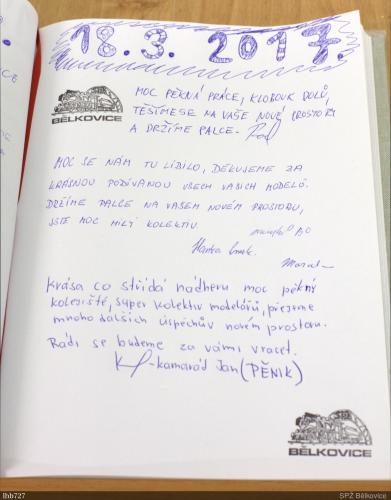 18.3.2017.
BĚLKOVICE
MOC PĚKNÁ PRÁCE, KLOBOUK DOLŮ,
TĚŠÍMESE NA VAŠE NOVÉ PROSTORY
A DRŽÍME PALCE.
MOC SE NÁM TU LÍBILO, DĚKUJEME ZA
KRÁSNOU PODÍVANOU VŠECH VAŠICH MODELŮ.
DRŽÍME PALCE NA VAŠEM NOVÉM PROSTORU,
JSTE MOC MILÝ KOLEKTIV
Hanka
Krása co střídá nádheru moc pěkný
kolejiště, super kolektiv modelářů, přejeme
mnoho dalších úspěchův novém prostoru.
Rádi se budeme za vámi vracet.
-kamarád Jan (PĚNIK)
BĚLKOVICE
lhb727
SPŽ Bělkovice